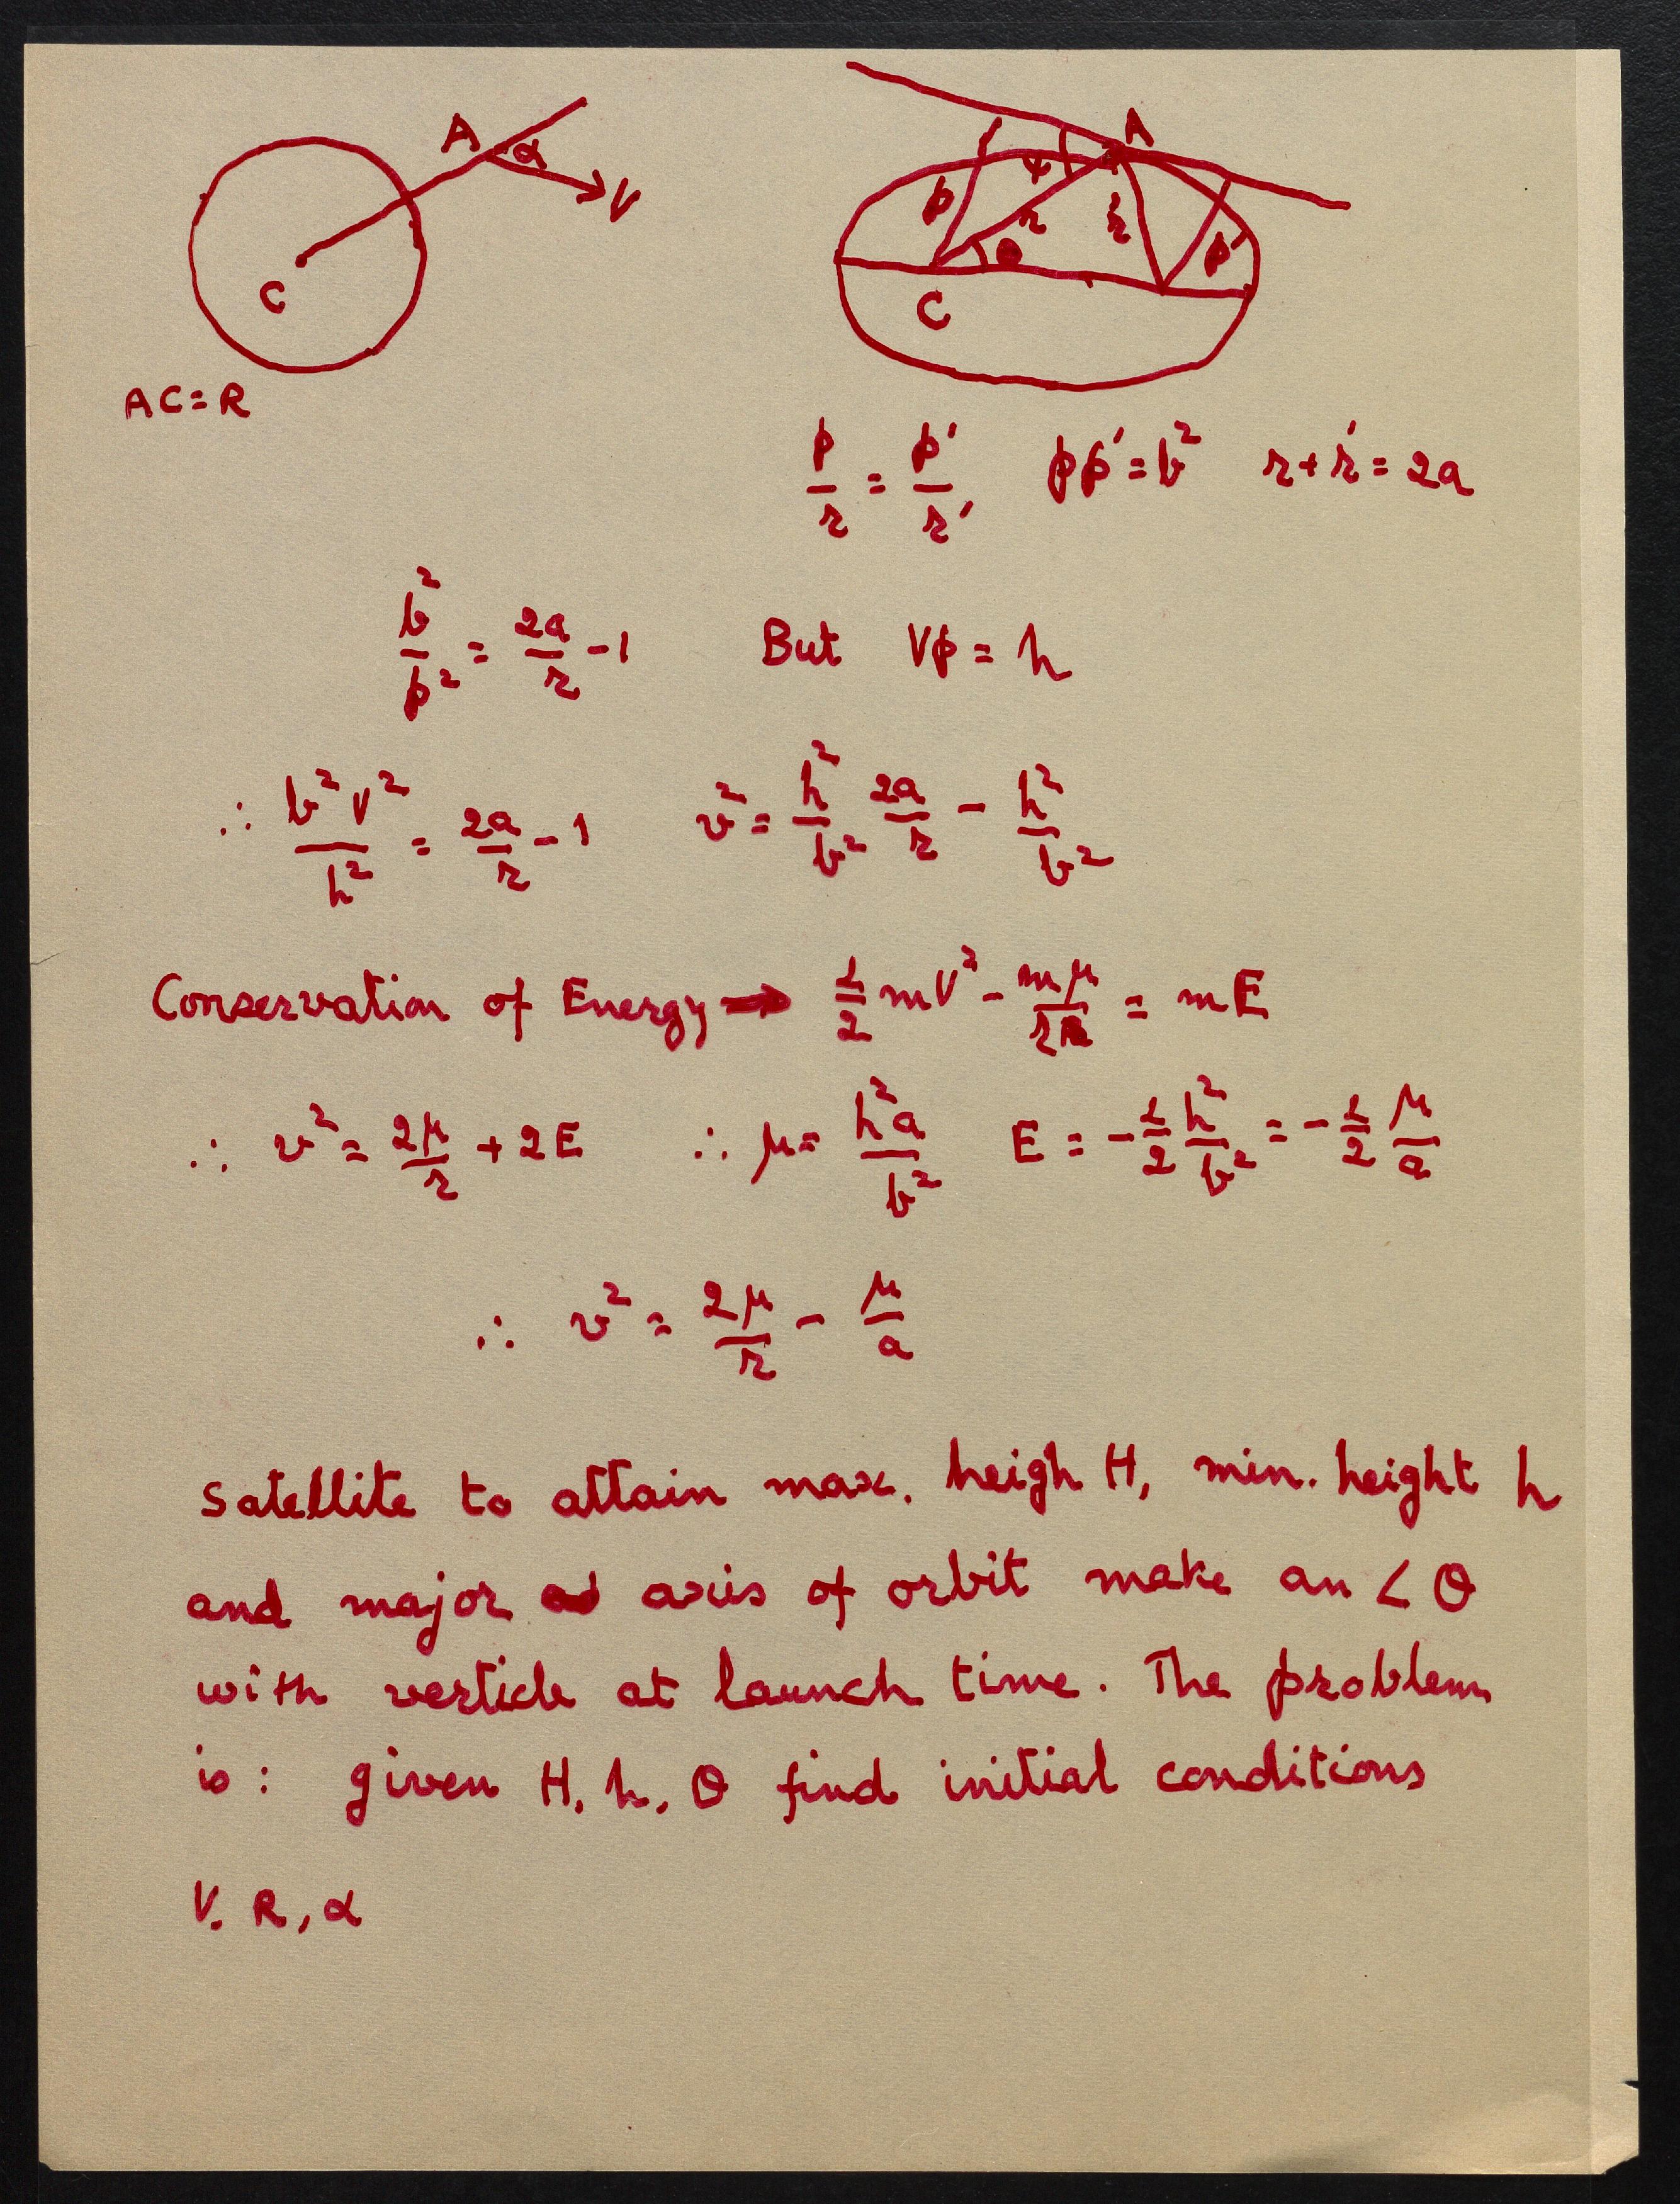 A α V
C
AC = R
A
p ψ r r' p'
θ
C
p/r = p'/r' pp' = b² r + r' = 2a
b²/p² = 2a/r - 1 But Vp = h
∴ b²V²/h² = 2a/r - 1 v² = h²/b² 2a/r - h²/b²
Conservation of Energy → 1/2 mV² - mμ/r = mE
∴ v² = 2μ/r + 2E ∴ μ = h²a/b² E = -1/2 h²/b² = -1/2 μ/a
∴ v² = 2μ/r - μ/a
Satellite to attain max. heigh H, min. height h
and major axis of orbit make an ∠ θ
with verticle at launch time. The problem
is: given H, h, θ find initial conditions
V, R, α